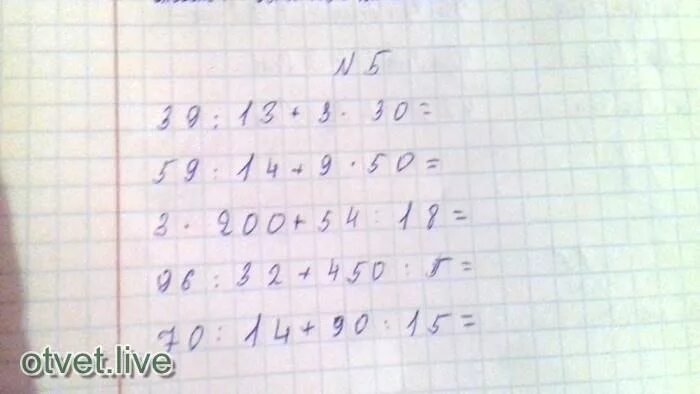 N 5
39 : 13 + 3 · 30 =
59 : 14 + 9 · 50 =
3 · 200 + 54 : 18 =
96 : 32 + 450 : 5 =
70 : 14 + 90 : 15 =
otvet.live